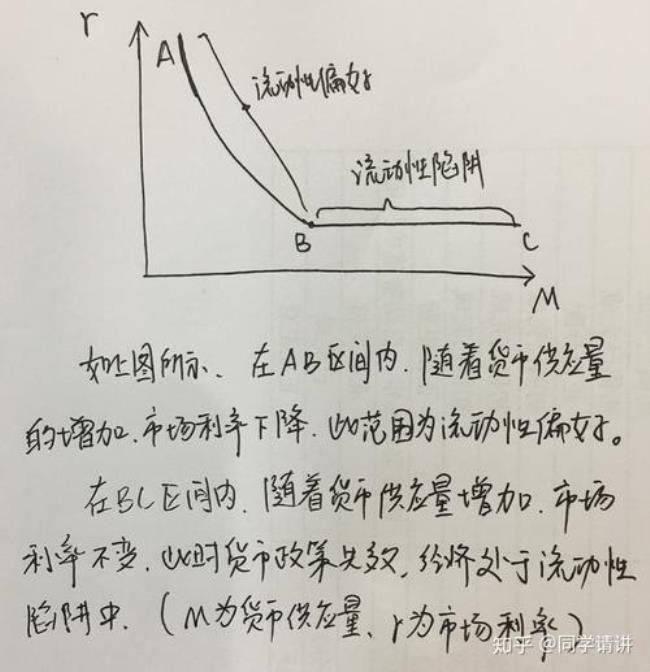 r
A
流动性偏好
流动性陷阱
B
C
M
如上图所示、在AB区间内,随着货币供应量
的增加,市场利率下降,此范围为流动性偏好。
在BC区间内,随着货币供应量增加,市场
利率不变,此时货币政策失效,经济处于流动性
陷阱中.(M为货币供应量、r为市场利率)
知乎 @同学请讲